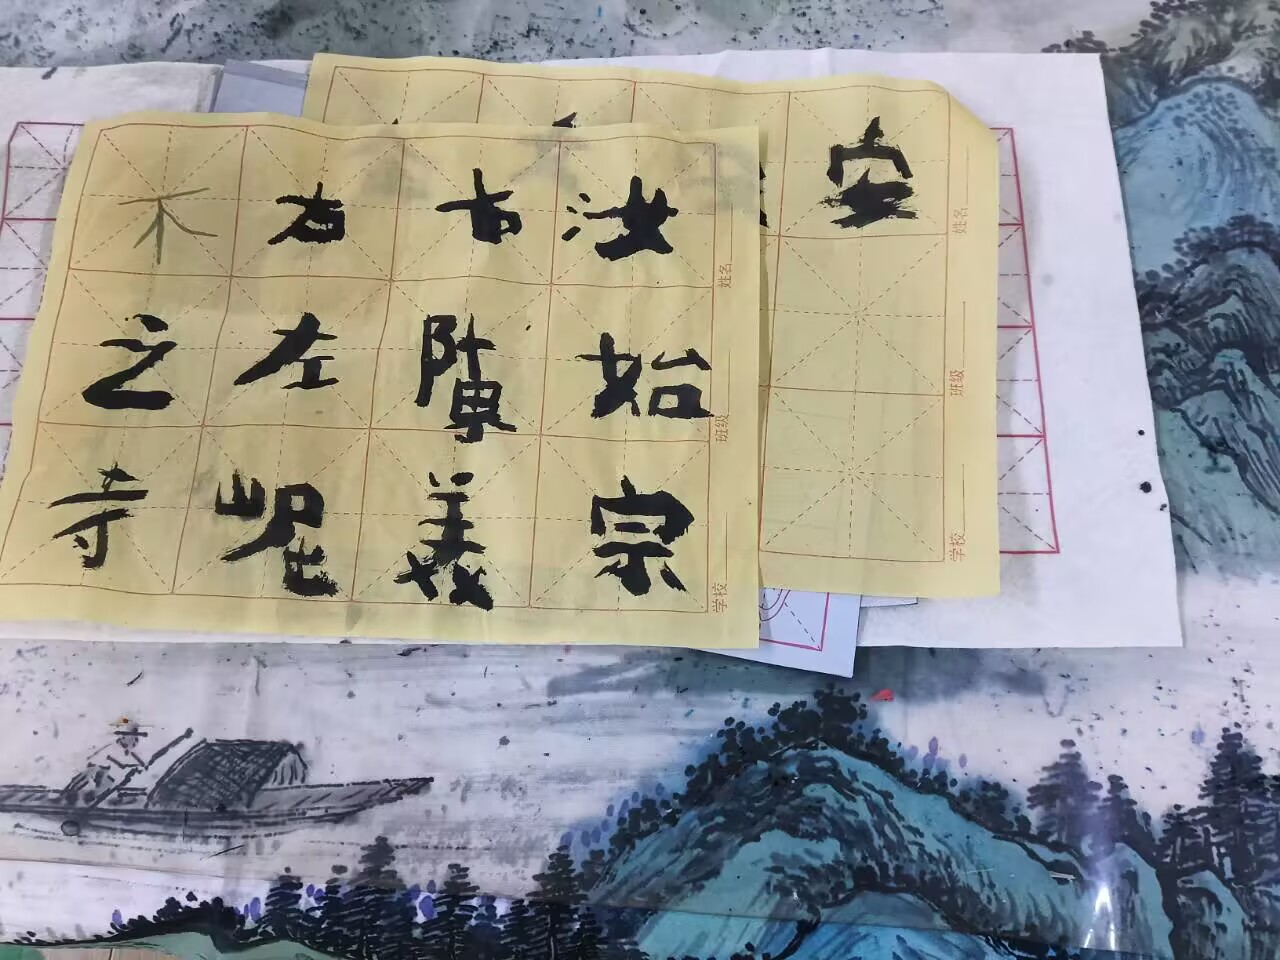 洪始宗
右陳義
左崐
之寺
安
姓名
班级
学校
姓名
班级
学校